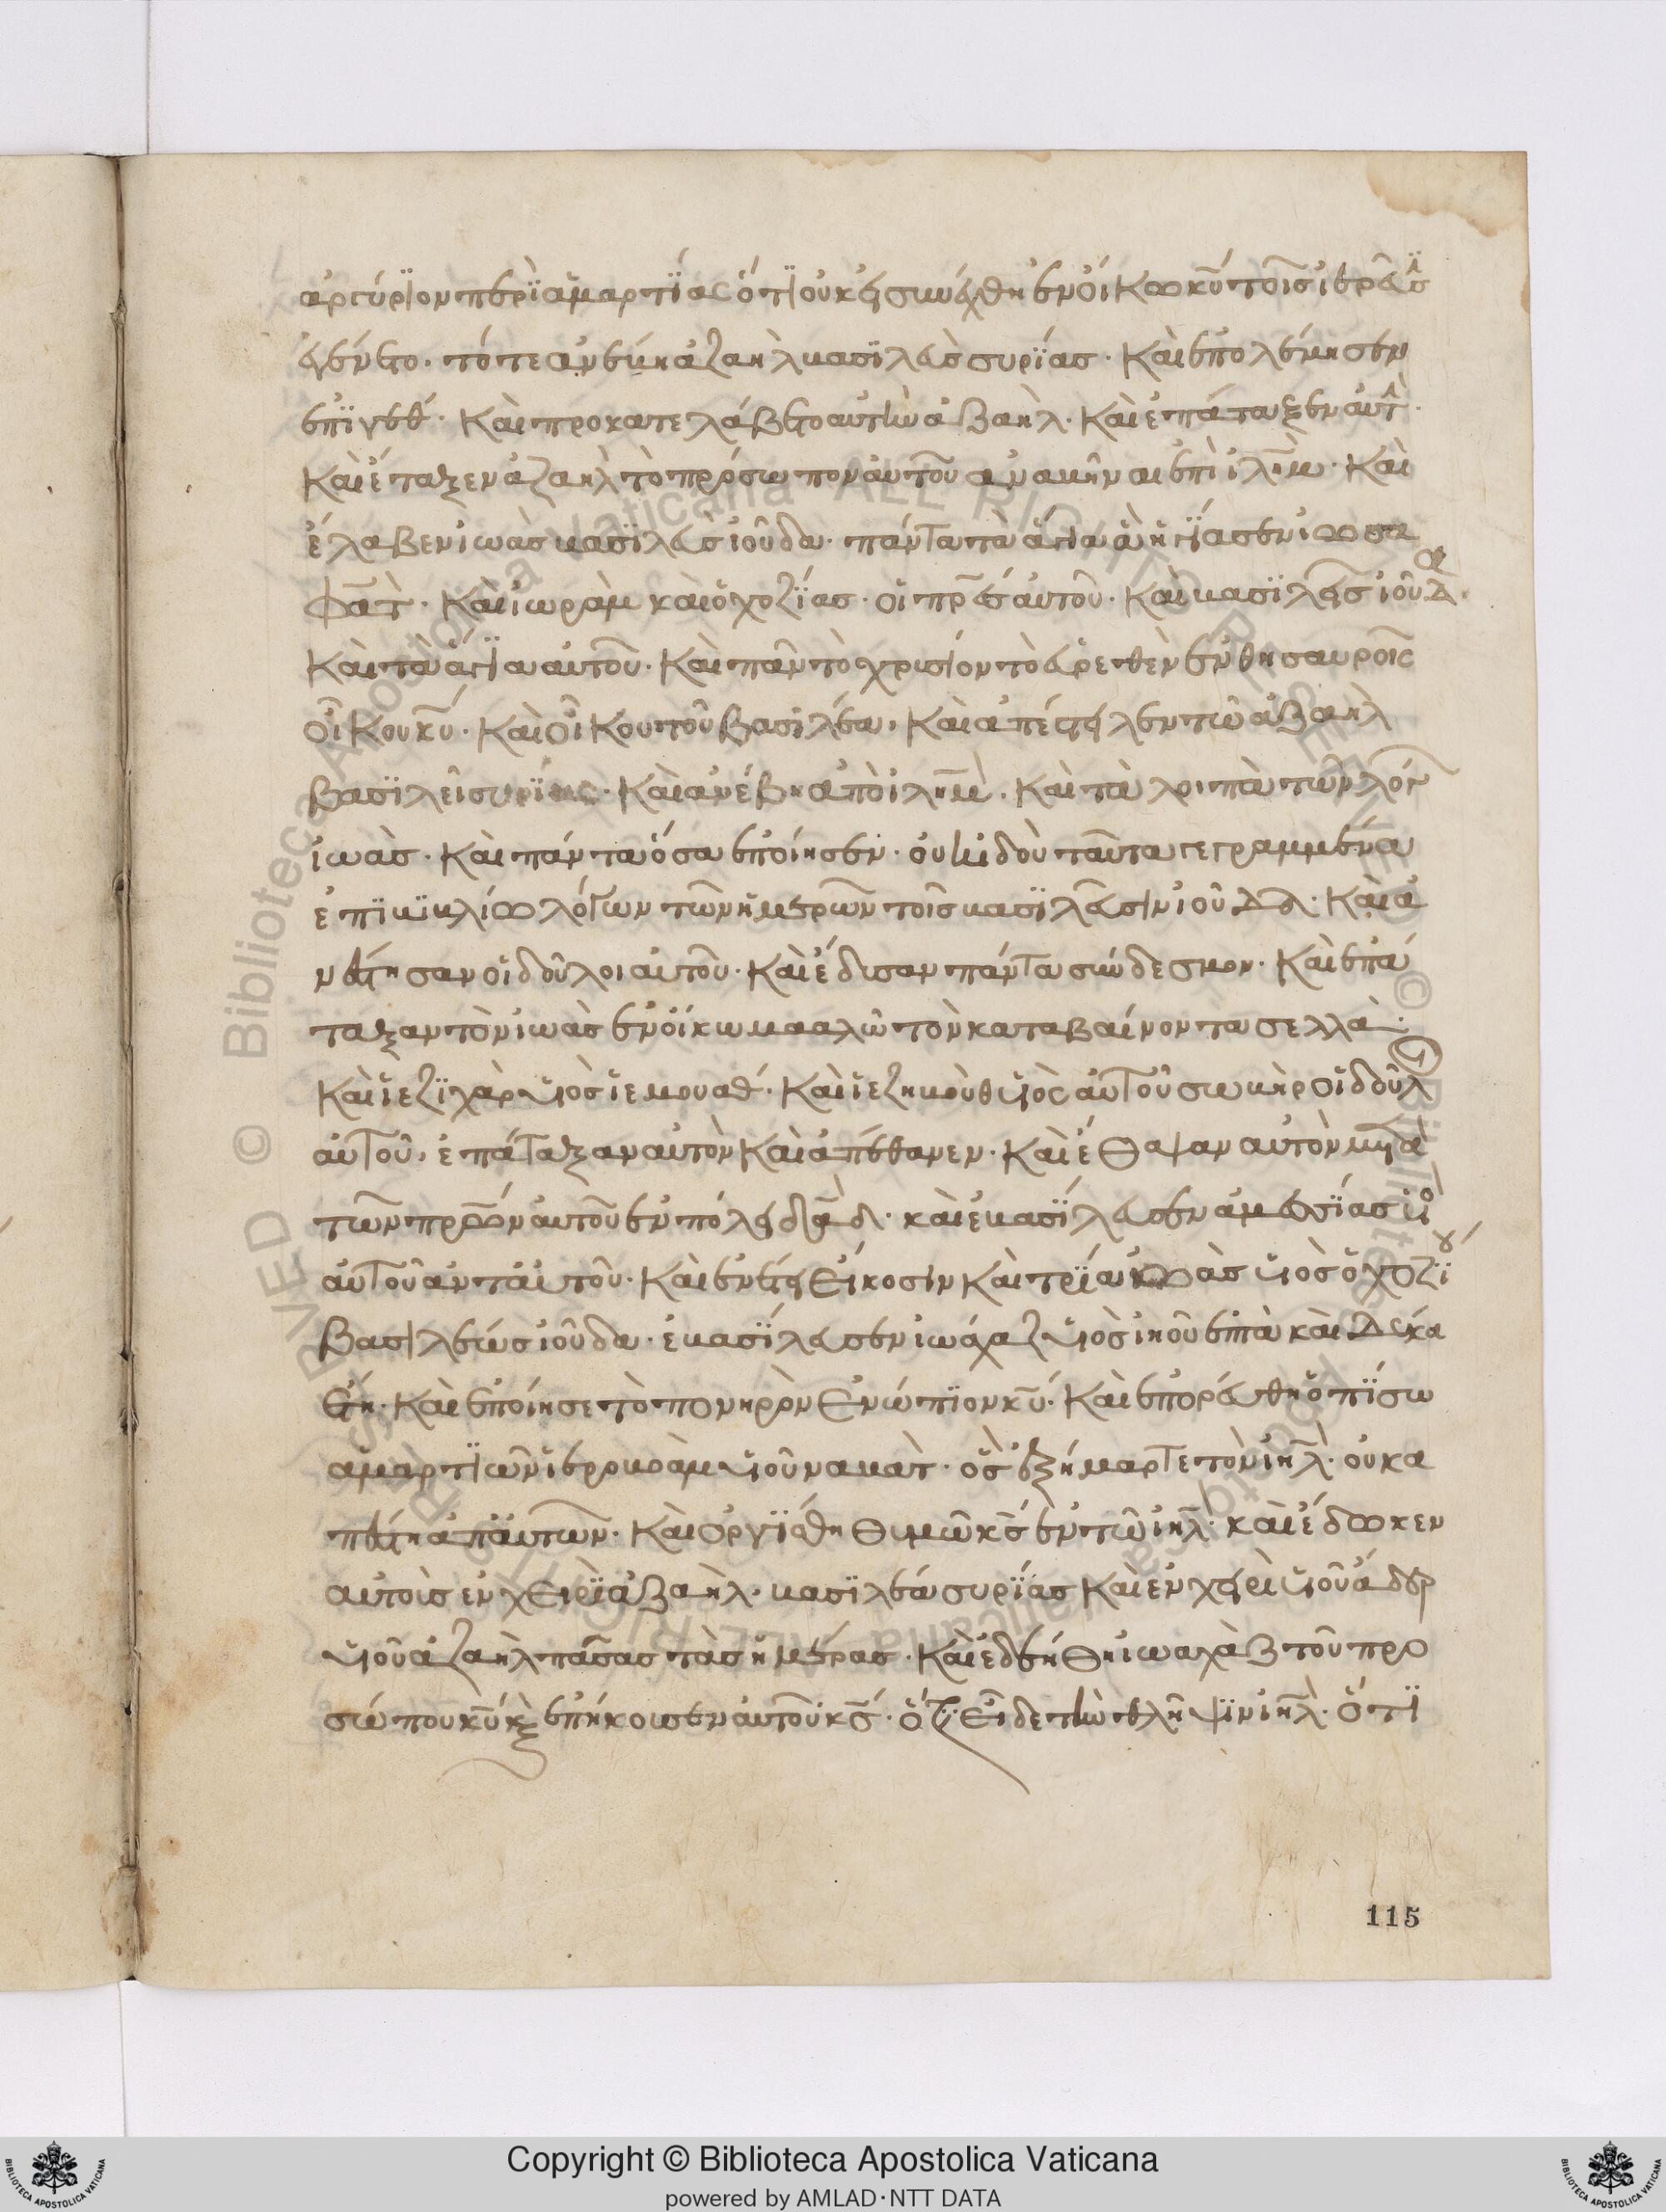 ἀργύριον περὶ ἁμαρτίας ὅτι οὐκ εἰσηνέχθη ἐν οἴκω κῦ τοῖς ἱερεῦσ
ἐγένετο· τότε ἀνέβη ἀζαὴλ βασιλεὺς συρίας· Καὶ ἐπολέμησεν
ἐπὶ γέθ· Καὶ προκατελάβετο αὐτὴν ἀζαὴλ· Καὶ ἐπάταξεν αὐτ
Καὶ ἔταξεν ἀζαὴλ τὸ πρόσωπον αὐτοῦ ἀναβῆναι ἐπὶ ἰλὴμ· Καὶ
ἔλαβεν ἰωὰς βασιλεὺς ἰούδα· πάντα τὰ ἅγια ἃ ἡγίασεν ἰωσα
φὰτ· Καὶ ἰωρὰμ καὶ ὀχοζίας· οἱ πρες αὐτοῦ· Καὶ βασιλεῖς ἰούδα·
Καὶ τὰ ἅγια αὐτοῦ· Καὶ πᾶν τὸ χρυσίον τὸ εὑρεθὲν ἐν θησαυροῖς
οἴκου κῦ· Καὶ οἴκου τοῦ βασιλέως· Καὶ ἀπέστειλεν τῶ ἀζαὴλ
βασιλεῖ συρίας· Καὶ ἀνέβη ἀπὸ ἰλημ· Καὶ τὰ λοιπὰ τῶν λόγ
ἰωὰς· Καὶ πάντα ὅσα ἐποίησεν· οὐκ ἰδοὺ ταῦτα γεγραμμένα
ἐπὶ βιβλίω λόγων τῶν ἡμερῶν τοῖς βασιλεῦσιν ἰούδα· Καὶ ἀ
νέστησαν οἱ δοῦλοι αὐτοῦ· Καὶ ἔδησαν πάντα σύνδεσμον· Καὶ ἐπά
ταξαν τὸν ἰωὰς ἐν οἴκω μααλὼ τὸν καταβαίνοντα σελλὰ·
Καὶ ἰεζιχὰρ υἱὸς ἰεμουαθ· Καὶ ἰεζηβοὺθ υἱὸς αὐτοῦ σωμὴρ οἱ δοῦλοι
αὐτοῦ· ἐπάταξαν αὐτὸν Καὶ ἀπέθανεν· Καὶ ἔθαψαν αὐτὸν μετὰ
τῶν πρων αὐτοῦ ἐν πόλει δαδ· καὶ ἐβασίλευσεν ἀμεσίας υἱο
αὐτοῦ ἀντ αὐτοῦ· Καὶ ἐν ἔτει εἴκοσιν Καὶ τρία ἰωὰς υἱὸς ὀχοζίου
βασιλέως ἰούδα· ἐβασίλευσεν ἰωάχαζ υἱὸς ἰηοῦ ἐπτὰ καὶ δέκα
ἔτη· Καὶ ἐποίησε τὸ πονηρὸν ἐνώπιον κῦ· Καὶ ἐπορεύθη ὀπίσω
ἁμαρτιῶν ἰεροβοὰμ υἱοῦ ναβὰτ· ὃς ἐξήμαρτε τὸν ἰηλ· οὐκ ἀ
πέστη ἀπ αὐτῶν· Καὶ ὀργίσθη θυμῶ κς ἐν τῶ ἰηλ· καὶ ἔδωκεν
αὐτοὺς ἐν χειρὶ ἀζαὴλ· βασιλέως συρίας Καὶ ἐν χειρὶ υἱοῦ ἄδερ
υἱοῦ ἀζαὴλ πάσας τὰς ἡμέρας· Καὶ ἐδεήθη ἰωαχὰζ τοῦ προ
σώπου κῦ κ ἐπήκουσεν αὐτοῦ κς· ὅτι εἶδε τὴν θλῆψιν ἰηλ· ὅτι
115
Copyright © Biblioteca Apostolica Vaticana
powered by AMLAD·NTT DATA